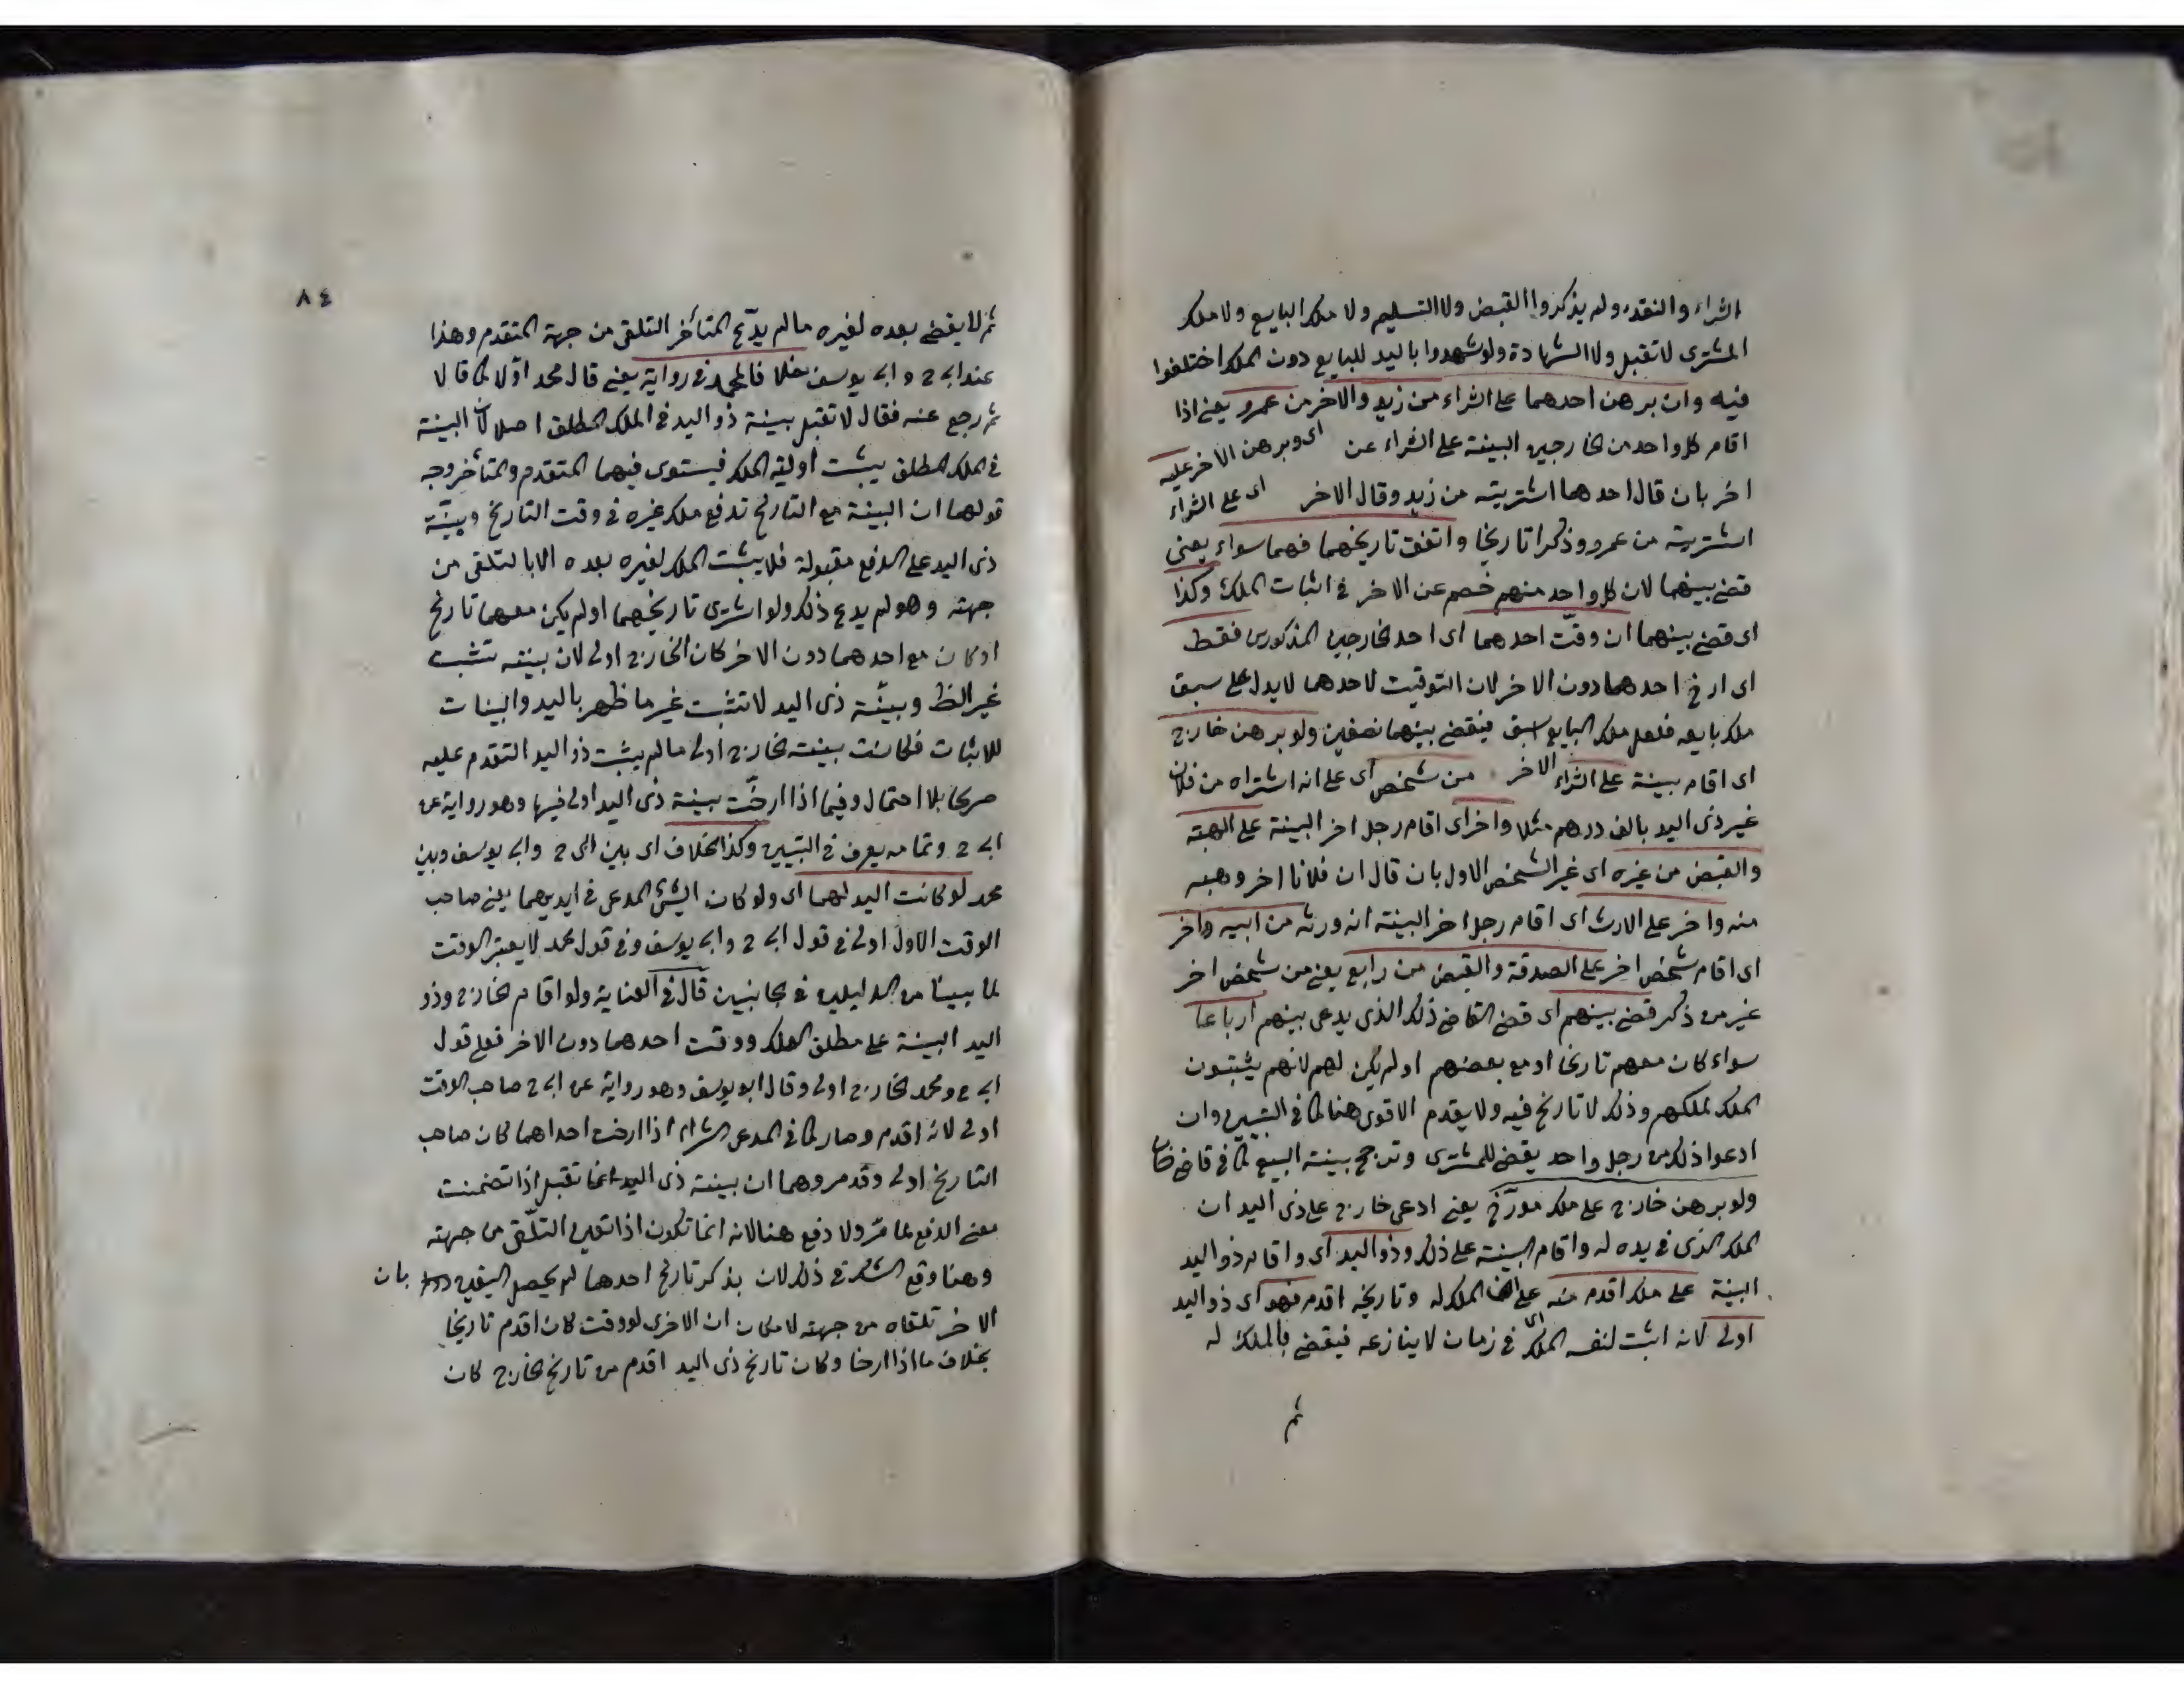 الشراء والنقد ولم يذكروا القبض ولا التسليم ولا ملك البايع ولا ملك
المشترى لا تقبل ولا الشهادة ولو شهدوا باليد للبايع دون الملك اختلفوا
فيه وان برهن احدهما على الشراء من زيد والاخر من عمرو يعنى اذا
اقام كل واحد من الخارجين البينة على الشراء عن اى وبرهن الاخر عليه
اخر بان قال احدهما اشتريته من زيد وقال الاخر اى على الشراء
اشتريته من عمرو وذكرا تاريخا واتفق تاريخهما فهما سواء يعنى
قضى بينهما لان كل واحد منهم خصم عن الاخر فى اثبات الملك وكذا
اى قضى بينهما ان وقّت احدهما اى احد الخارجين المذكورين فقط
اى ارخ احدهما دون الاخر لان التوقيت لاحدهما لا يدل على سبق
ملك بايعه فلعل ملك البايع اسبق فيقضى بينهما نصفين ولو برهن خارج
اى اقام بينة على الشراء الاخر من شخص اى على انه اشتراه من فلان
غير ذى اليد بالف درهم مثلا واخر اى اقام رجل اخر البينة على الهبته
والقبض من غيره اى غير الشخص الاول بان قال ان فلانا اخر وهبه
منه واخر على الارث اى اقام رجل اخر البينة انه ورثه من ابيه واخر
اى اقام شخص اخر على الصدقة والقبض من رابع يعنى من شخص اخر
غير من ذكر قضى بينهم اى قضى القاضى ذلك الذى يدعى بينهم ارباعا
سواء كان معهم تاريخا او مع بعضهم او لم يكن لهم لانهم يثبتون
الملك لملكهم وذلك لا تاريخ فيه ولا يقدم الاقوى هنا كما فى التبيين وان
ادعوا ذلك من رجل واحد يقضى للمشترى وترجح بينة البيع كما فى قاضى خان
ولو برهن خارج على ملك مورّخ يعنى ادعى خارج على ذى اليد ان
الملك الذى فى يده له واقام البينة على ذلك وذو اليد اى واقام ذو اليد
البينة على ملك اقدم منه على ان الملك له وتاريخه اقدم فهو اى ذو اليد
اولى لانه اثبت لنفسه الملك فى زمان لا ينازعه فيقضى بالملك له
ثم
٨٤
ثم لا يقضى بعده لغيره ما لم يدّع المتأخر التلقى من جهة المتقدم وهذا
عند ابى ح وابى يوسف خلافا لمحمد فى رواية يعنى قال محمد اوّلا كما قالا
ثم رجع عنه فقال لا تقبل بينة ذو اليد فى الملك المطلق اصلا لان البينة
فى الملك المطلق يثبت اولية الملك فيستوى فيهما المتقدم والمتأخر وجه
قولهما ان البينة مع التاريخ تدفع ملك غيره فى وقت التاريخ وبيّنة
ذى اليد على الدفع مقبولة فلا يثبت الملك لغيره بعده الا بالتلقى من
جهته وهو لم يدع ذلك ولو استوى تاريخهما او لم يكن معهما تاريخ
او كان مع احدهما دون الاخر كان الخارج اولى لان بينته تثبت
غير الظ وبينّة ذى اليد لا تثبت غير ما ظهر باليد والبينات
للاثبات فكانت بينت الخارج اولى ما لم يثبت ذو اليد التقدم عليه
صريحا بلا احتمال وفيما اذا ارخّت بينة ذى اليد اولى فيها وهو رواية عن
ابى ح وتمامه يعرف فى التبيين وكذا الخلاف اى بين ابى ح وابى يوسف وبين
محمد لو كانت اليد لهما اى ولو كان الشئ المدعى فى ايديهما يعنى صاحب
الوقت الاول اولى فى قول ابى ح وابى يوسف وفى قول محمد لا يعتبر الوقت
لما بينا من الدليلين فى الجانبين قال فى العناية ولو اقام الخارج وذو
اليد البينة على مطلق الملك ووقت احدهما دون الاخر فعلى قول
ابى ح ومحمد الخارج اولى وقال ابو يوسف وهو رواية عن ابى ح صاحب الوقت
اولى لانه اقدم وصار كما فى المدعى الشراء اذا ارخت احداهما كان صاحب
التاريخ اولى وقد مر وهما ان بينة ذى اليد انما تقبل اذا تضمنت
معنى الدفع لما مرّ ولا دفع هنا لانه انما تكون اذا تعين التلّقى من جهته
وهنا وقع الشك فى ذلك لان بذكر تاريخ احدهما لم يحصل اليقين بان
الاخر تلقاه من جهته لامكان ان الاخرى لو وقت كان اقدم تاريخا
بخلاف ما اذا ارخا وكان تاريخ ذى اليد اقدم من تاريخ الخارج كان